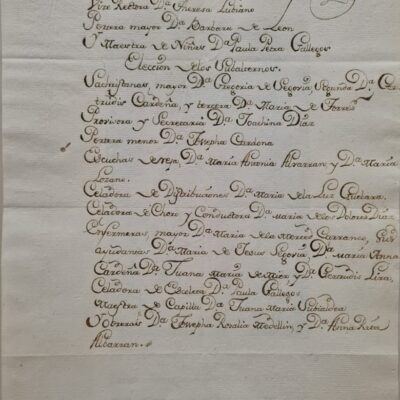 Vize Rectora Da Theresa Lubiano
Portera mayor Da Barbara de Leon
Y Maestra de Niñas Da Paula Petra Gallegos
Eleccion de los Subalternos.
Sachristanas, mayor Da Gregoria de Segovia Segunda Da Ger
trudis Cardeña, y tercera Da Maria de Torres
Provisora y Secretaria Da Joachina Diaz
Portera menor Da Josepha Cardona
Escuchas de reja, Da Maria Antonia Alvarran y Da Maria
Lozano.
Celadora de Distribuziones Da Maria de la Luz Guebara
Celadora de Choro y Conductora Da Maria de los Dolores Diaz
Enfermeras, mayor Da Maria de la Merced Carranco, sus
ayudantas Da Maria de Jesus Segovia, Da Maria Anna
Cardeña Da Juana Maria de Mier, y Da Gertrudis Lira,
Celadora de Escoleta Da Paula Gallegos
Maestra de Capilla Da Juana Maria Subialdea
Y Obreras Da Josepha Rosalia Medellin, y Da Anna Rita
Albarran.